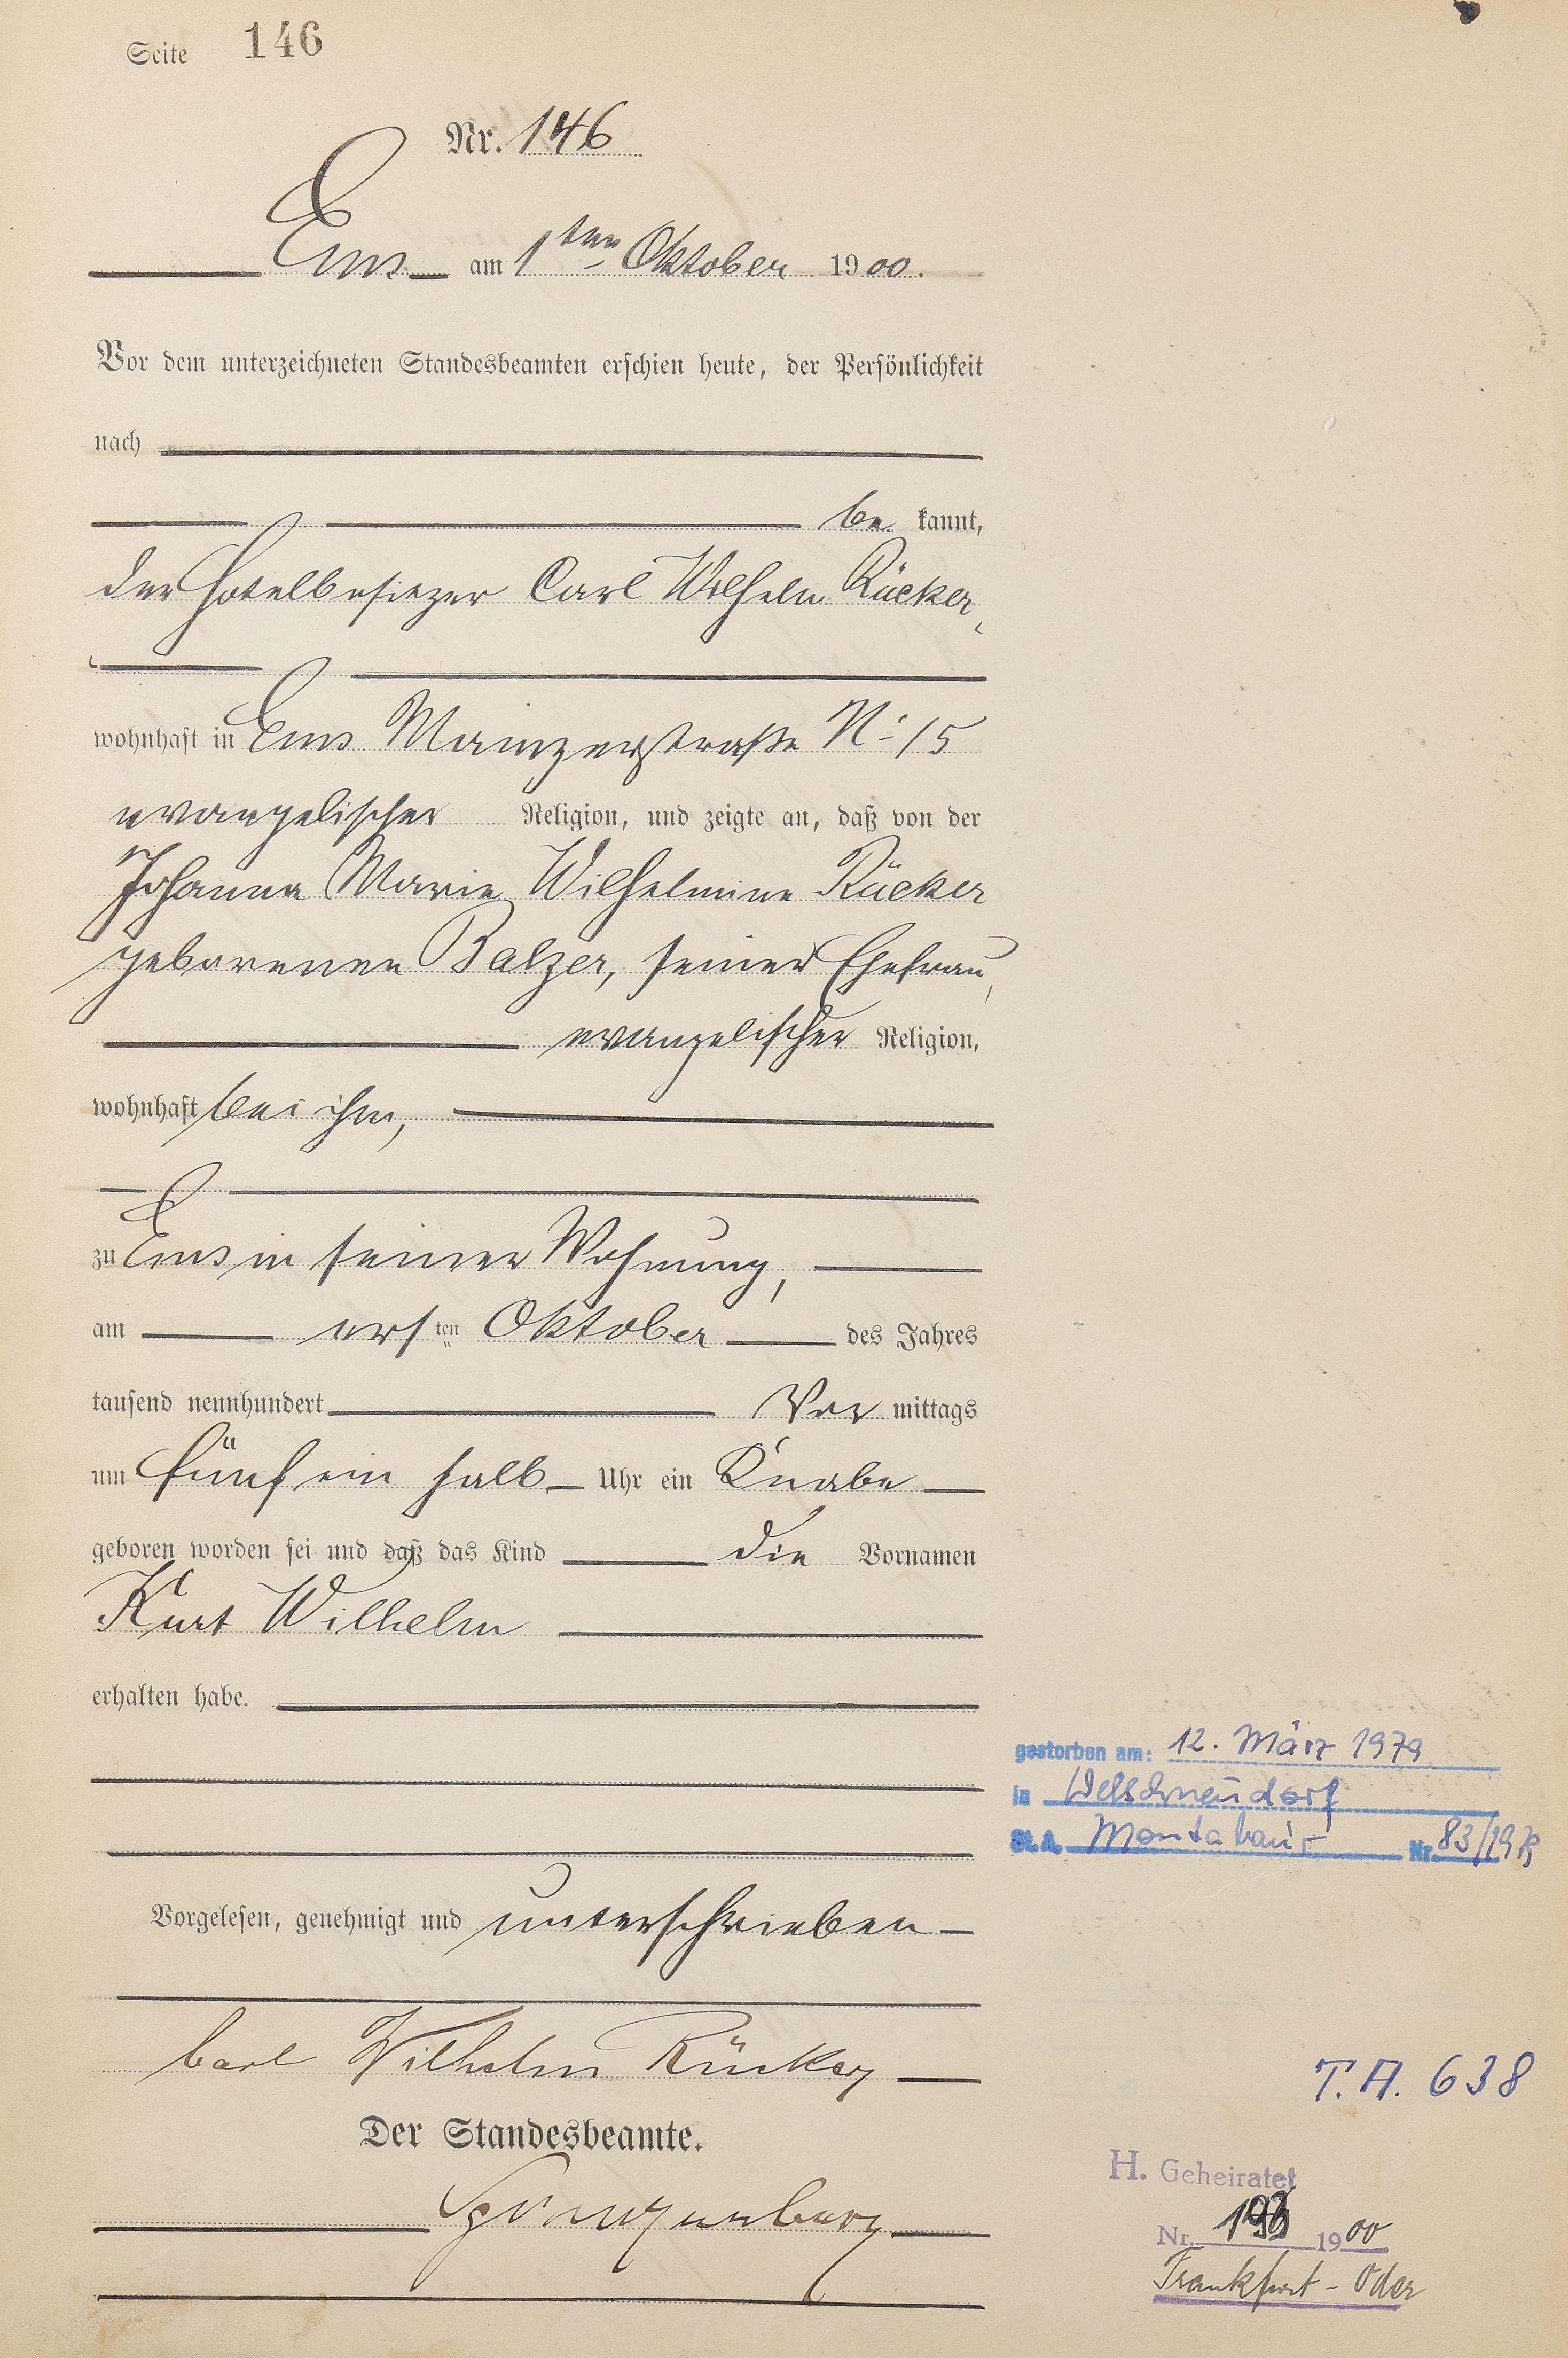 Seite 146
Nr. 146
Ems am 1ten Oktober 1900.
Vor dem unterzeichneten Standesbeamten erschien heute, der Persönlichkeit
nach
be kannt,
der Hotelbesitzer Carl Wilhelm Rücker,
wohnhaft in Ems Mainzerstraße No 15
evangelischer Religion, und zeigte an, daß von der
Johanna Marie Wilhelmine Rücker
geborenen Balzer, seiner Ehefrau,
evangelischer Religion,
wohnhaft bei ihm,
zu Ems in seiner Wohnung,
am ersten Oktober des Jahres
tausend neunhundert Vor mittags
um fünf ein halb Uhr ein Knabe
geboren worden sei und daß das Kind die Vornamen
Kurt Wilhelm
erhalten habe.
gestorben am: 12. März 1979
in Welschneudorf
St.A. Montabaur Nr. 83/1979
Vorgelesen, genehmigt und unterschrieben
Carl Wilhelm Rücker
T.A. 638
Der Standesbeamte.
H. Geheiratet
Nr. 1900
Frankfurt - Oder